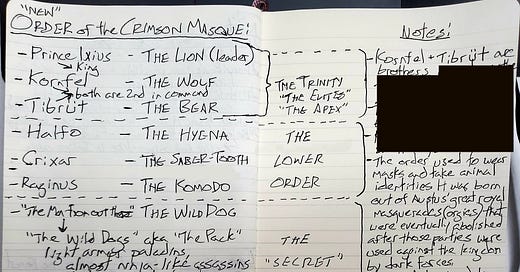 "NEW"
ORDER of the CRIMSON MASQUE:
- Prince Ixius - THE LION (leader)
King
- Kornfel - THE WOLF
both are 2nd in command
- Tibrüt - THE BEAR
THE TRINITY
"THE ELITES"
"THE APEX"
- Halfo - THE HYENA
- Crixar - THE SABER-TOOTH
- Raginus - THE KOMODO
THE
LOWER
ORDER
- "The Man from out there" - THE WILD DOG
"The Wild Dogs" aka "The Pack"
light armor paladins,
almost ninja-like assassins
THE
"SECRET"
Notes:
- Kornfel + Tibrüt are
brothers
- The order used to wear
masks and take animal
identities. It was born
out of great royal
masquerades (orgies) that
were eventually abolished
after those parties were
used against the kingdom
by dark forces.